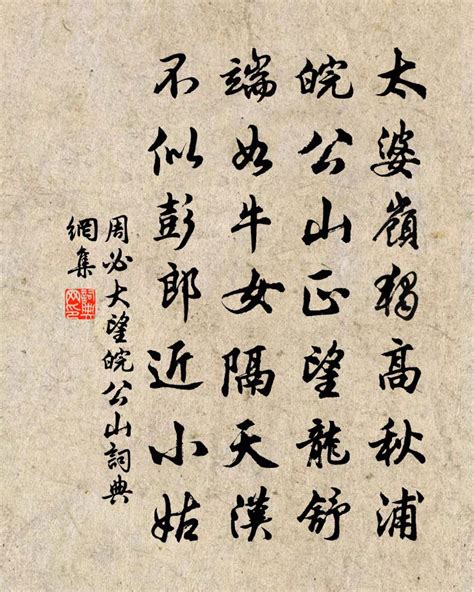 太婆嶺獨高秋浦
皖公山正望龍舒
端如牛女隔天漢
不似彭郎近小姑
周必大望皖公山詞典
網集
詞典网印